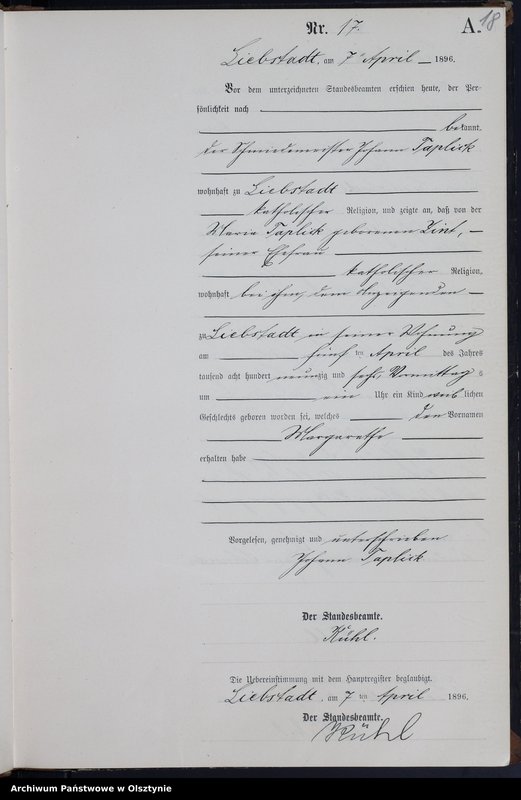 18
Nr. 17.
A.
Liebstadt, am 7 April 1896.
Vor dem unterzeichneten Standesbeamten erschien heute, der Per-
sönlichkeit nach
bekannt,
der Schmiedemeister Johann Taplick
wohnhaft zu Liebstadt
katholischer Religion, und zeigte an, daß von der
Marie Taplick geborenen Zint,
seiner Ehefrau
katholischer Religion,
wohnhaft bei ihm, dem Anzeigenden
zu Liebstadt in seiner Wohnung
am fünf ten April des Jahres
tausend acht hundert neunzig und sechs, Vormittag s
um ein Uhr ein Kind weib lichen
Geschlechts geboren worden sei, welches den Vornamen
Margarethe
erhalten habe
Vorgelesen, genehmigt und unterschrieben
Johann Taplick
Der Standesbeamte.
Kühl.
Die Uebereinstimmung mit dem Hauptregister beglaubigt.
Liebstadt, am 7 ten April 1896.
Der Standesbeamte.
Kühl
Archiwum Państwowe w Olsztynie